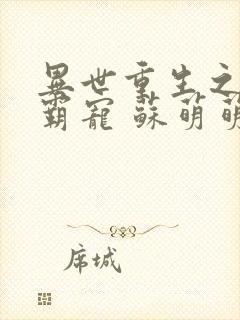 異世重生之
霸寵 蘇萌萌
席城